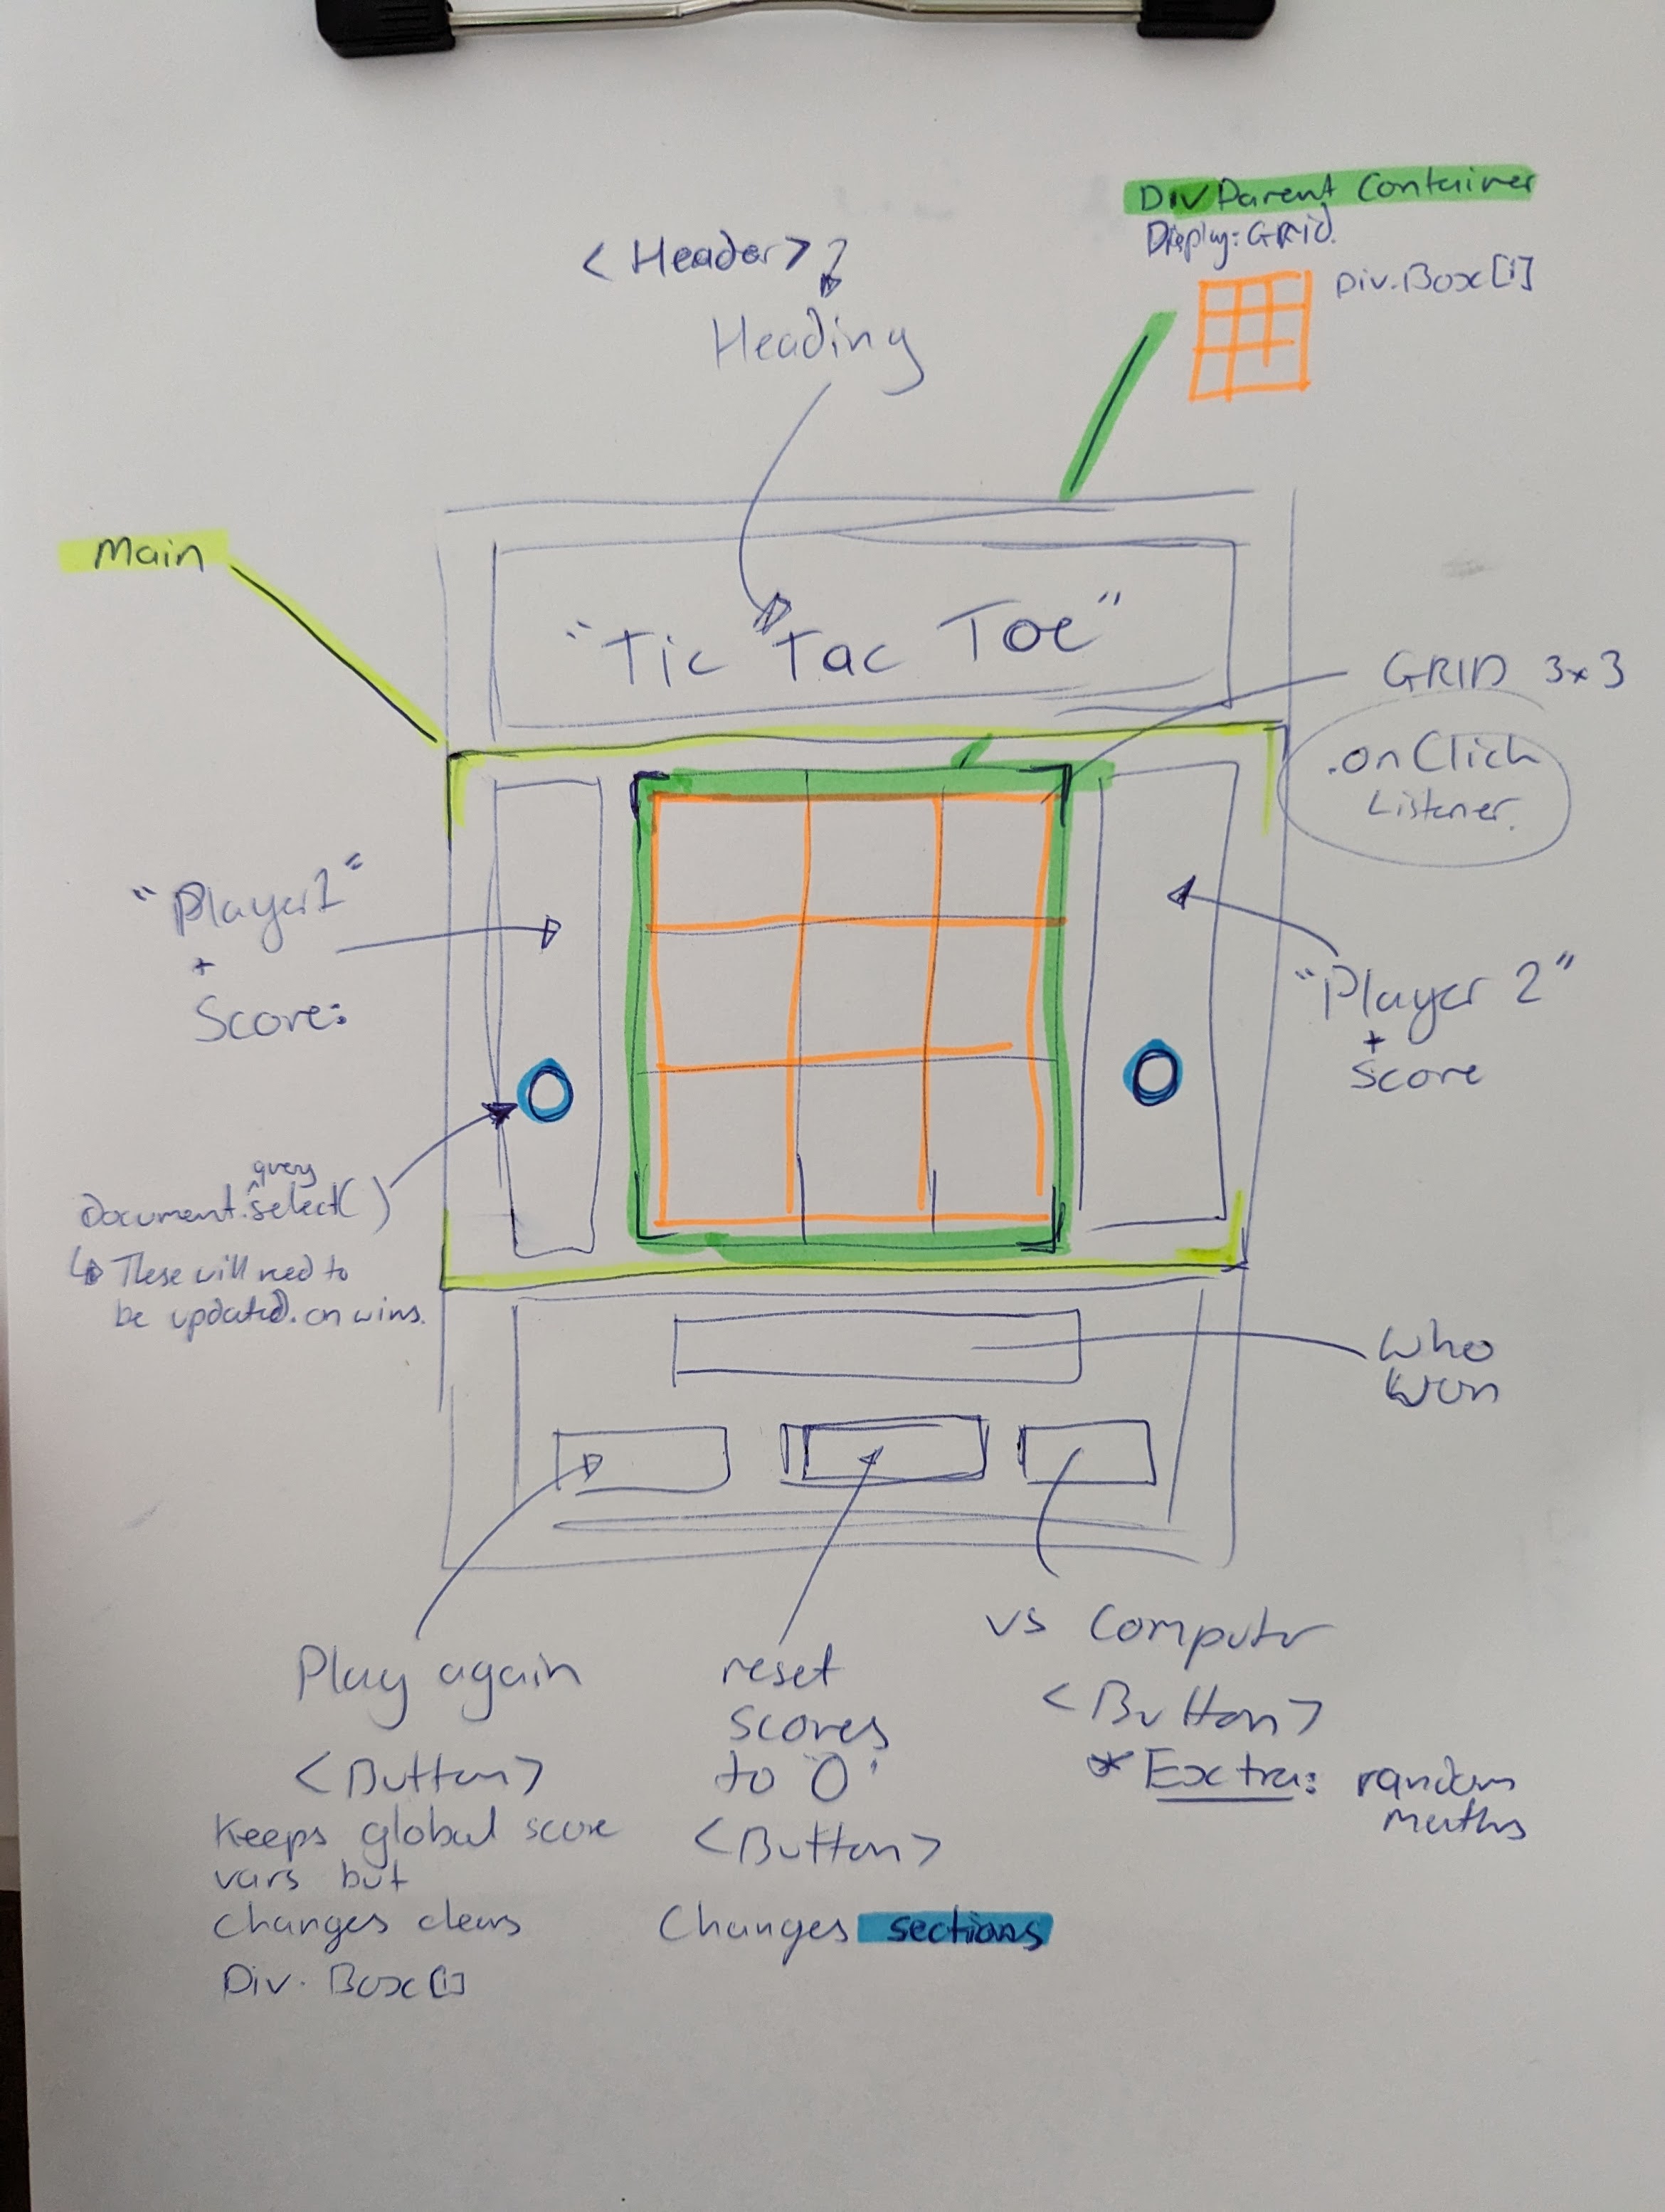 Div Parent Container
Display: GRID.
Div.Box[i]
<Header>
Heading
Main
"Tic Tac Toe"
GRID 3x3
.onClick
Listener.
"Player1"
+
Score:
"Player 2"
+
Score
query
document.select()
These will need to
be updated. on wins.
Who
Won
Play again
<Button>
Keeps global score
vars but
changes clears
Div. Box[i]
reset
scores
to "0"
<Button>
Changes sections
vs Computer
<Button>
*Extra: random
maths